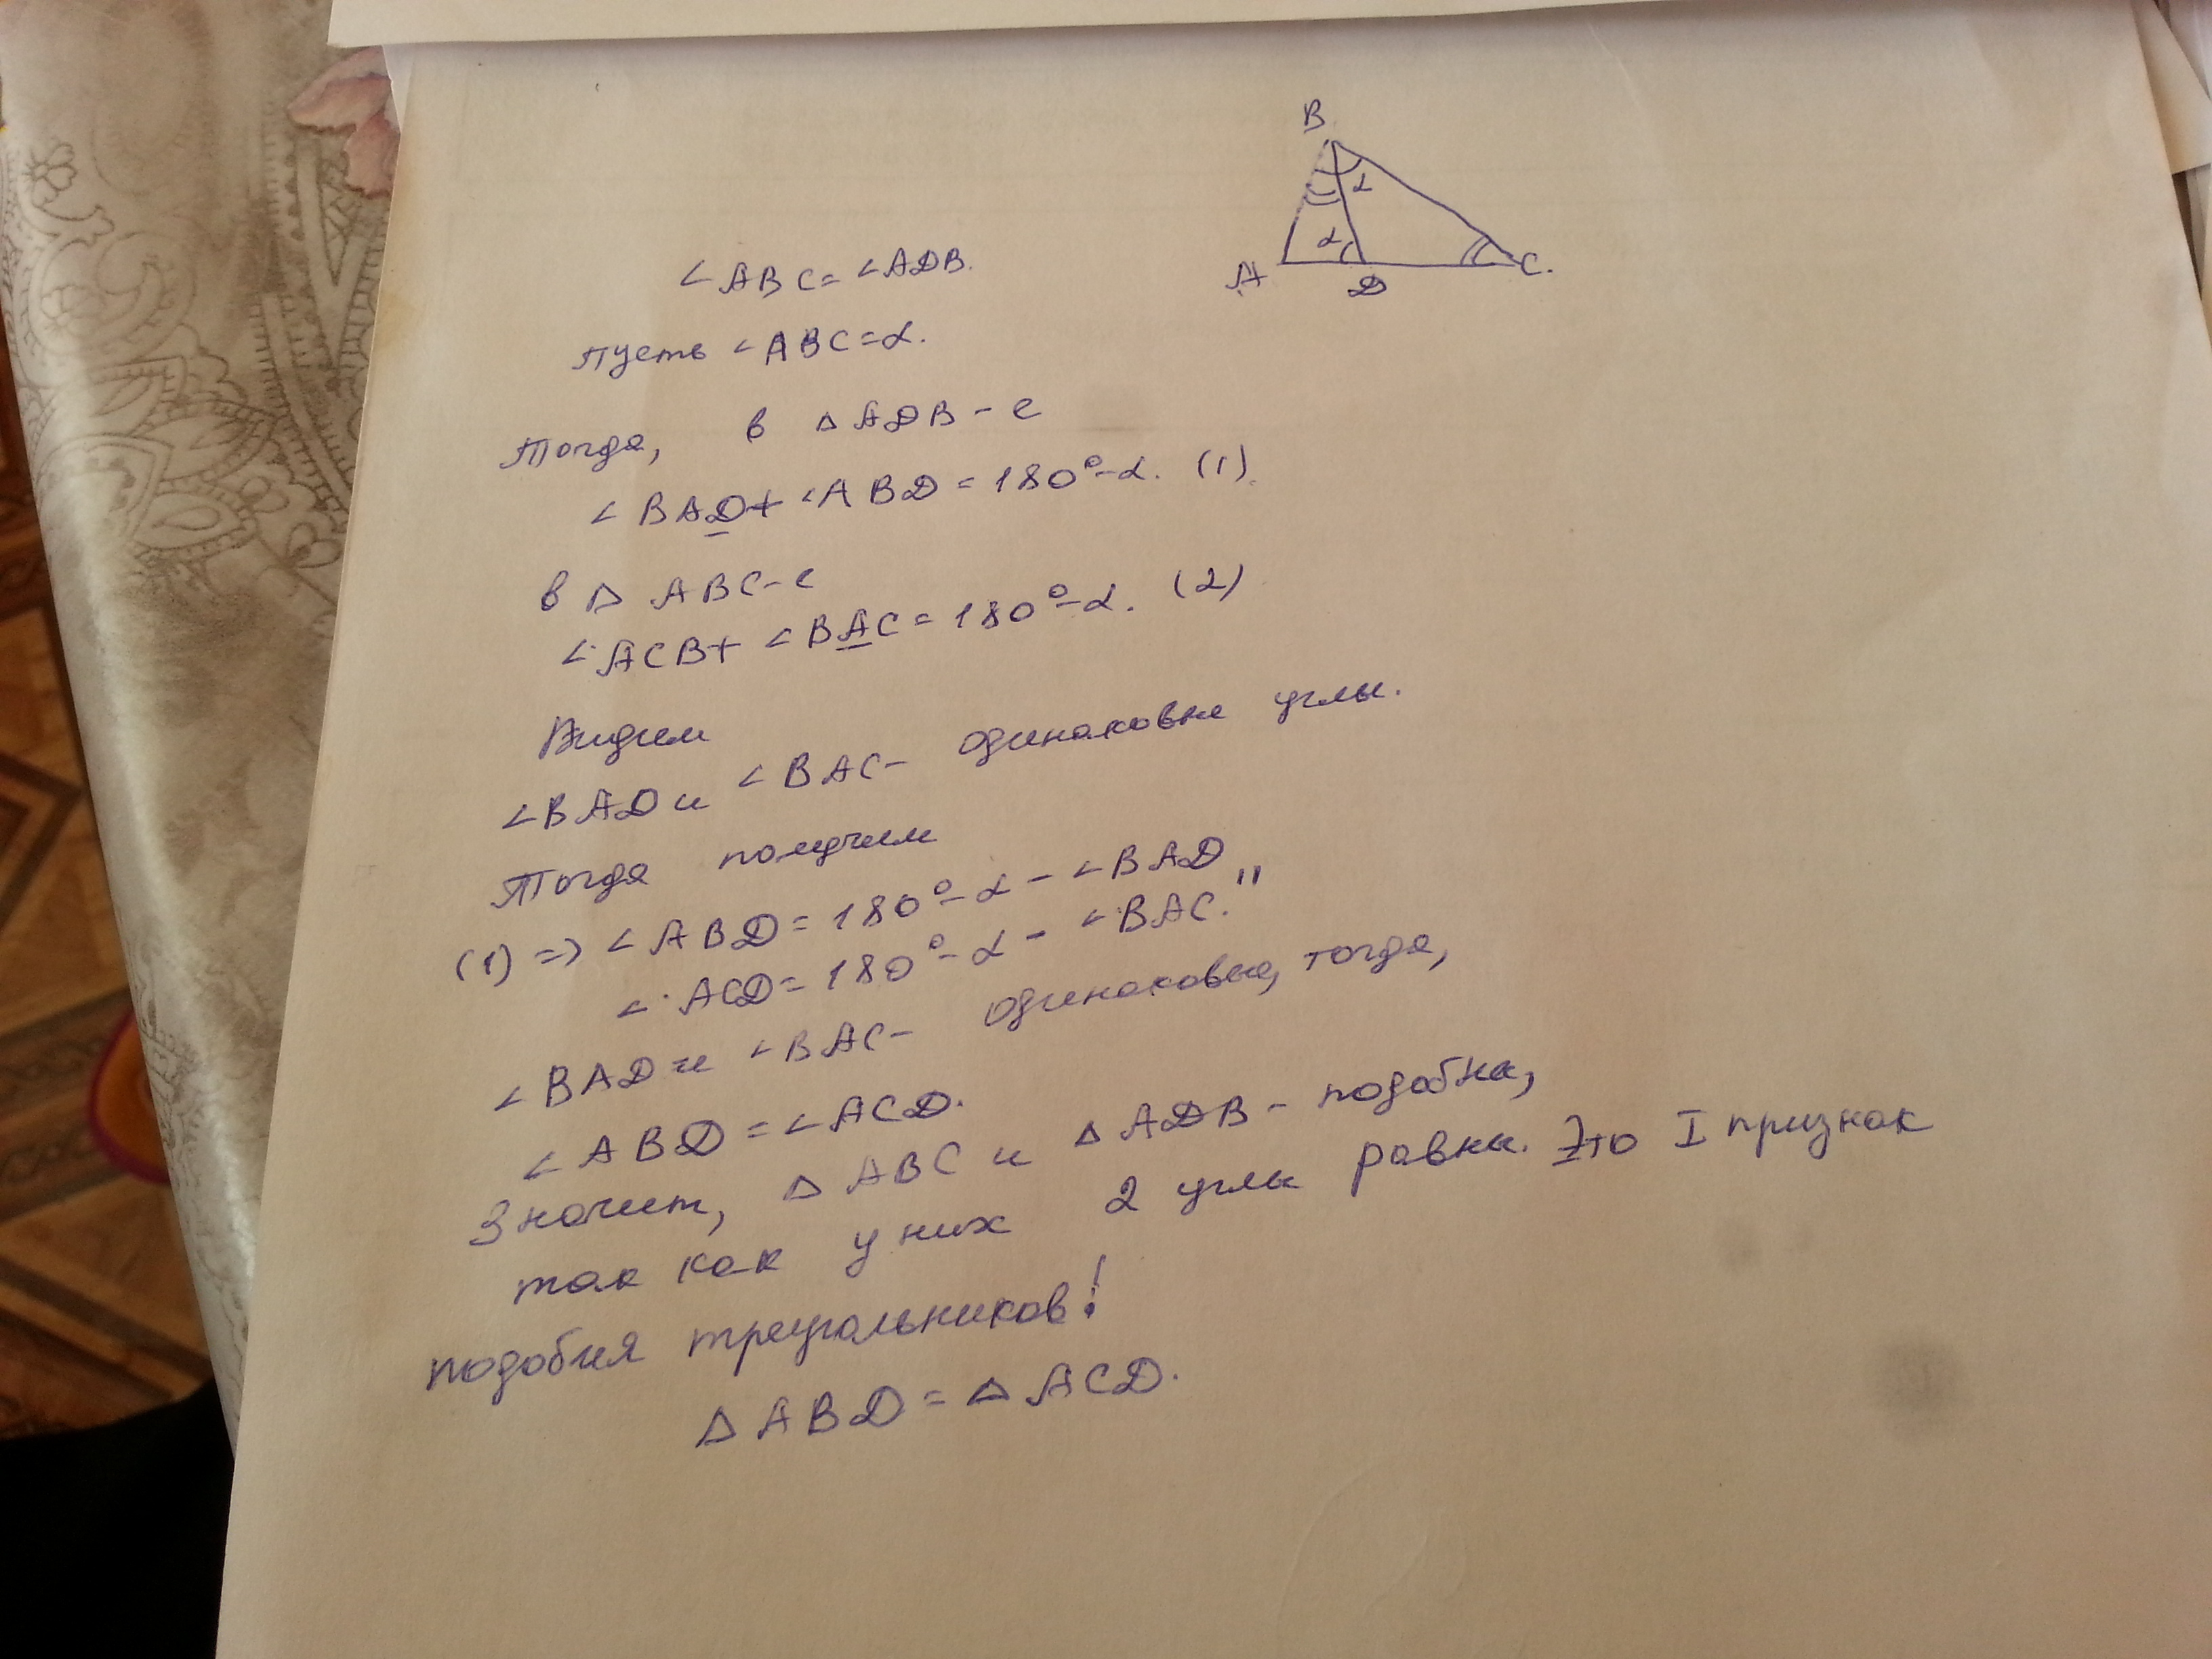 B
α
α
A
D
C.
∠ABC=∠ADB.
Пусть ∠ABC=α.
Тогда, в △ADB-е
∠BAD+∠ABD=180°-α. (1).
в △ABC-е
∠ACB+∠BAC=180°-α. (2)
Видим
∠BAD и ∠BAC- одинаковые углы.
Тогда получим
(1)=>∠ABD=180°-α-∠BAD
∠ACD=180°-α-∠BAC."
∠BAD и ∠BAC- одинаковые, тогда,
∠ABD=∠ACD.
Значит, △ABC и △ADB- подобны,
так как у них 2 углы равны. Это I признак
подобия треугольников!
△ABD=△ACD.